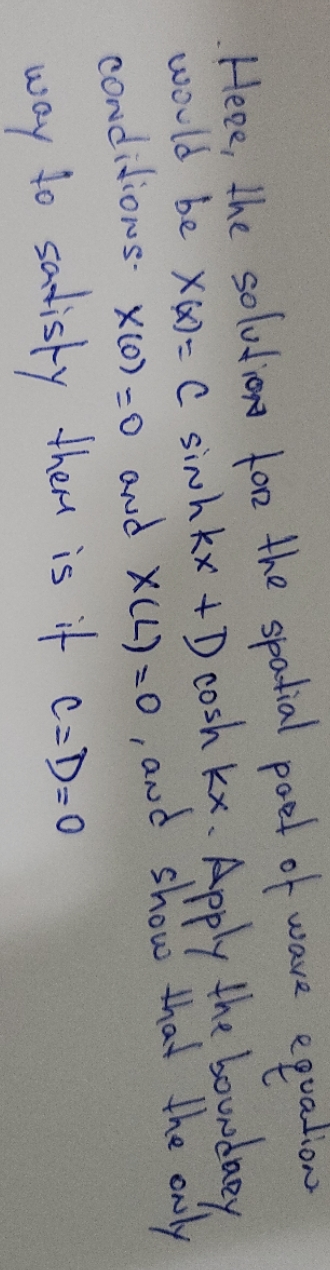 Here, the solution for the spatial part of wave equation
would be X(x) = C sinh kx + D cosh kx. Apply the boundary
conditions. X(0)=0 and X(L)=0, and show that the only
way to satisfy them is if C=D=0